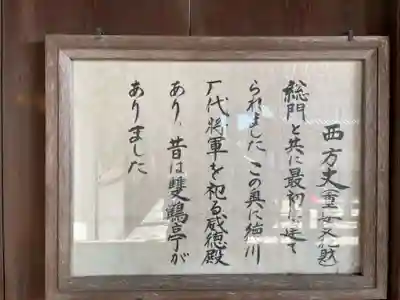 西方丈(重要文化財)
総門と共に最初に建て
られました この奥に徳川
八代将軍を祀る威徳殿
あり、昔は雙鶴亭が
ありました